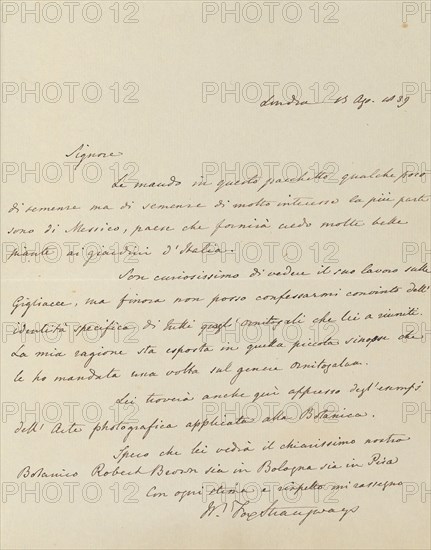 Londra 13 Ago. 1839
Signore
Le mando in questo pacchetto qualche poco
di semenze ma di semenze di molto interesse la più part
sono di Messico, paese che fornirà credo molte belle
piante ai giardini d'Italia.
Son curiosissimo di vedere il suo lavoro sulle
Gigliacee, ma finora non posso confessarmi convinto dell'
identità specifica di tutti quegl'ornitogali che lei a riuniti.
La mia ragione sta esposta in quella piccola sinopse che
le ho mandata una volta sul genere Ornitogalum.
Lei troverà anche quì appresso degl'esempj
dell'Arte photografica applicata alla Botanica.
Spero che lei vedrà il chiarissimo nostro
Botanico Robert Brown sia in Bologna sia in Pisa
Con ogni stima e rispetto mi rassegno
Wm. Fox Strangways
PHOTO12